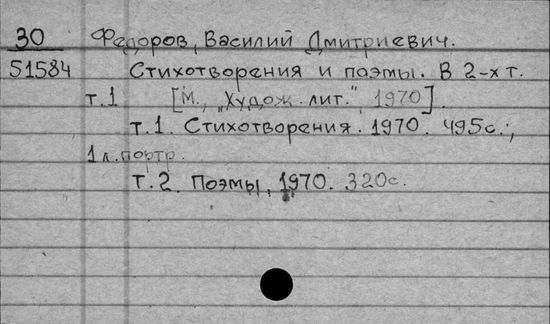 30 Федоров, Василий Дмитриевич.
51584 Стихотворения и поэмы. В 2-х т.
т.1 [М., „Худож. лит.", 1970].
т.1. Стихотворения. 1970. 495с.;
1 л. портр.
Т.2. Поэмы, 1970. 320с.